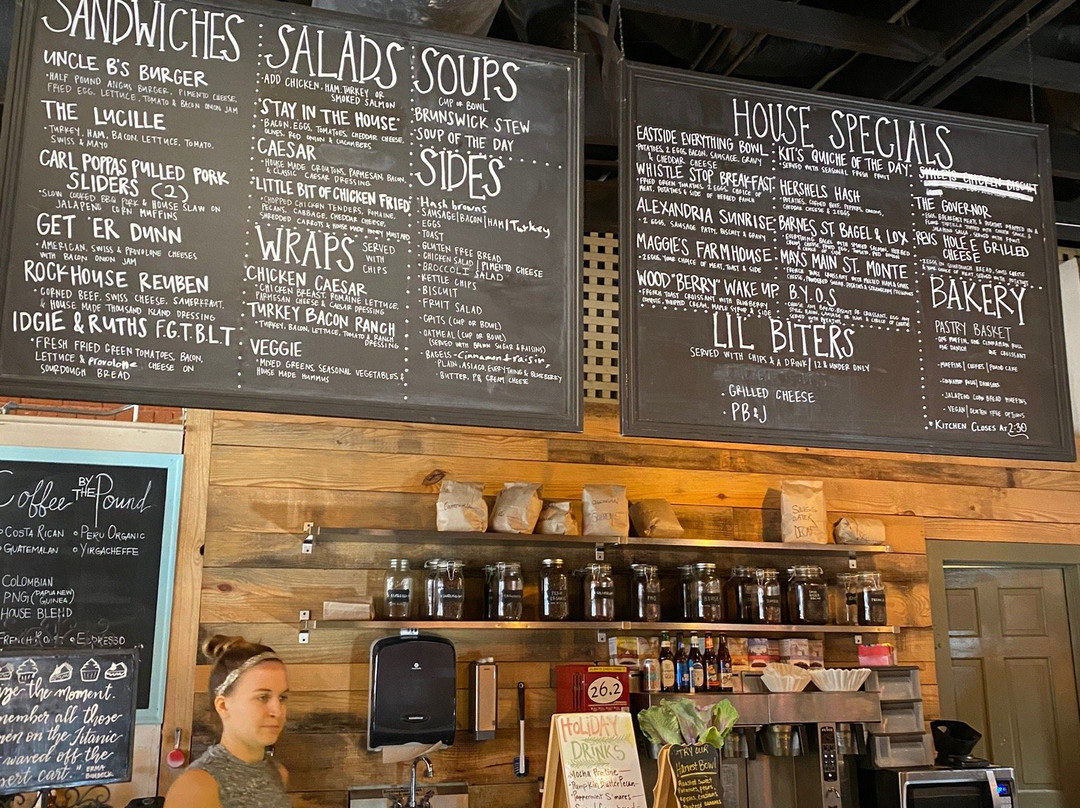 SANDWICHES
UNCLE B'S BURGER
• HALF POUND ANGUS BURGER, PIMENTO CHEESE,
FRIED EGG, LETTUCE, TOMATO & BACON ONION JAM
THE LUCILLE
• TURKEY, HAM, BACON, LETTUCE, TOMATO,
SWISS & MAYO
CARL POPPAS PULLED PORK
SLIDERS (2)
• SLOW COOKED BBQ PORK & HOUSE SLAW ON
JALAPENO CORN MUFFINS
GET 'ER DUNN
• AMERICAN, SWISS & PROVOLONE CHEESES
WITH BACON ONION JAM
ROCKHOUSE REUBEN
• CORNED BEEF, SWISS CHEESE, SAUERKRAUT,
& HOUSE MADE THOUSAND ISLAND DRESSING
IDGIE & RUTHS F.G.T.B.L.T
• FRESH FRIED GREEN TOMATOES, BACON,
LETTUCE & Provolone CHEESE ON
SOURDOUGH BREAD
SALADS
• ADD CHICKEN, HAM, TURKEY OR
SMOKED SALMON
"STAY IN THE HOUSE"
• BACON, EGGS, TOMATOES, CHEDDAR CHEESE,
OLIVES, RED ONION & CUCUMBERS
CAESAR
• HOUSE MADE CROUTONS, PARMESAN, BACON,
& CLASSIC CAESAR DRESSING
"LITTLE BIT OF CHICKEN FRIED"
• CHOPPED CHICKEN TENDERS, ROMAINE,
PECANS, CABBAGE, CHEDDAR CHEESE,
SHREDDED CARROTS & HOUSE MADE HONEY MUSTARD
WRAPS SERVED
WITH
CHIPS
CHICKEN CAESAR
• CHICKEN BREAST, ROMAINE LETTUCE,
PARMESAN CHEESE & CAESAR DRESSING
TURKEY BACON RANCH
• TURKEY, BACON, LETTUCE, TOMATO & RANCH
DRESSING
VEGGIE
• MIXED GREENS, SEASONAL VEGETABLES &
HOUSE MADE HUMMUS
SOUPS
CUP OR BOWL
• BRUNSWICK STEW
• SOUP OF THE DAY
SIDES
• Hash browns
• SAUSAGE | BACON | HAM | Turkey
• EGGS
• TOAST
• GLUTEN FREE BREAD
• CHICKEN SALAD | PIMENTO CHEESE
• BROCCOLI SALAD
• KETTLE CHIPS
• BISCUIT
• FRUIT SALAD
• GRITS (CUP OR BOWL)
• OATMEAL (CUP OR BOWL)
(SERVED WITH BROWN SUGAR & RAISINS)
• BAGELS - Cinnamon & raisin
PLAIN, ASIAGO, EVERYTHING & BLUEBERRY
• BUTTER, PB, CREAM CHEESE
HOUSE SPECIALS
EASTSIDE EVERYTHING BOWL
• POTATOES, 2 EGGS, BACON, SAUSAGE, GRAVY
& CHEDDAR CHEESE
WHISTLE STOP BREAKFAST
• FRIED GREEN TOMATOES, 2 EGGS, CHOICE OF
MEAT, POTATOES & SIDE OF
ALEXANDRIA SUNRISE
• 2 EGGS, SAUSAGE PATTY, BISCUIT & GRAVY
MAGGIES FARMHOUSE
• 2 EGGS, YOUR CHOICE OF MEAT, TOAST & SIDE
WOOD"BERRY" WAKE UP
• FRENCH TOAST CROISSANT WITH BLUEBERRY
COMPOTE, WHIPPED CREAM, MAPLE SYRUP & SIDE
KIT'S QUICHE OF THE DAY
• SERVED WITH SEASONAL FRESH FRUIT
HERSHELS HASH
• POTATOES, CORNED BEEF, PEPPERS, ONIONS,
CHEDDAR CHEESE & 2 EGGS
BARNES ST BAGEL & LOX
MAYS MAIN ST. MONTE
B.Y.O.S
THE GOVERNOR
REV'S HOLE E GRILLED
CHEESE
BAKERY
PASTRY BASKET
• ONE MUFFIN, ONE CINNAMON ROLL
ONE CROISSANT
• JALAPENO CORN BREAD MUFFINS
• VEGAN | GLUTEN FREE OPTIONS
* KITCHEN CLOSES AT 2:30
LIL BITERS
SERVED WITH CHIPS & A DRINK | 12 & UNDER ONLY
• GRILLED CHEESE
• PB&J
Coffee BY THE Pound
COSTA RICAN
PERU ORGANIC
GUATEMALAN
YIRGACHEFFE
COLOMBIAN
PNG (PAPUA NEW GUINEA)
HOUSE BLEND
FRENCH ROAST
ESPRESSO
ize the moment.
member all those
men on the Titanic
waved off the
sert cart."
ERMA BOMBECK
26.2
HOLIDAY
DRINKS
Mocha Praline
Pumpkin Butter Pecan
Peppermint S'mores
TRY OUR
Harvest Bowl